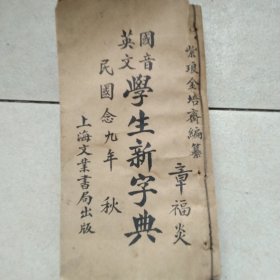 紫琅金培齋編纂
章福炎
國音
英文
學生新字典
民國念九年 秋
上海文業書局出版